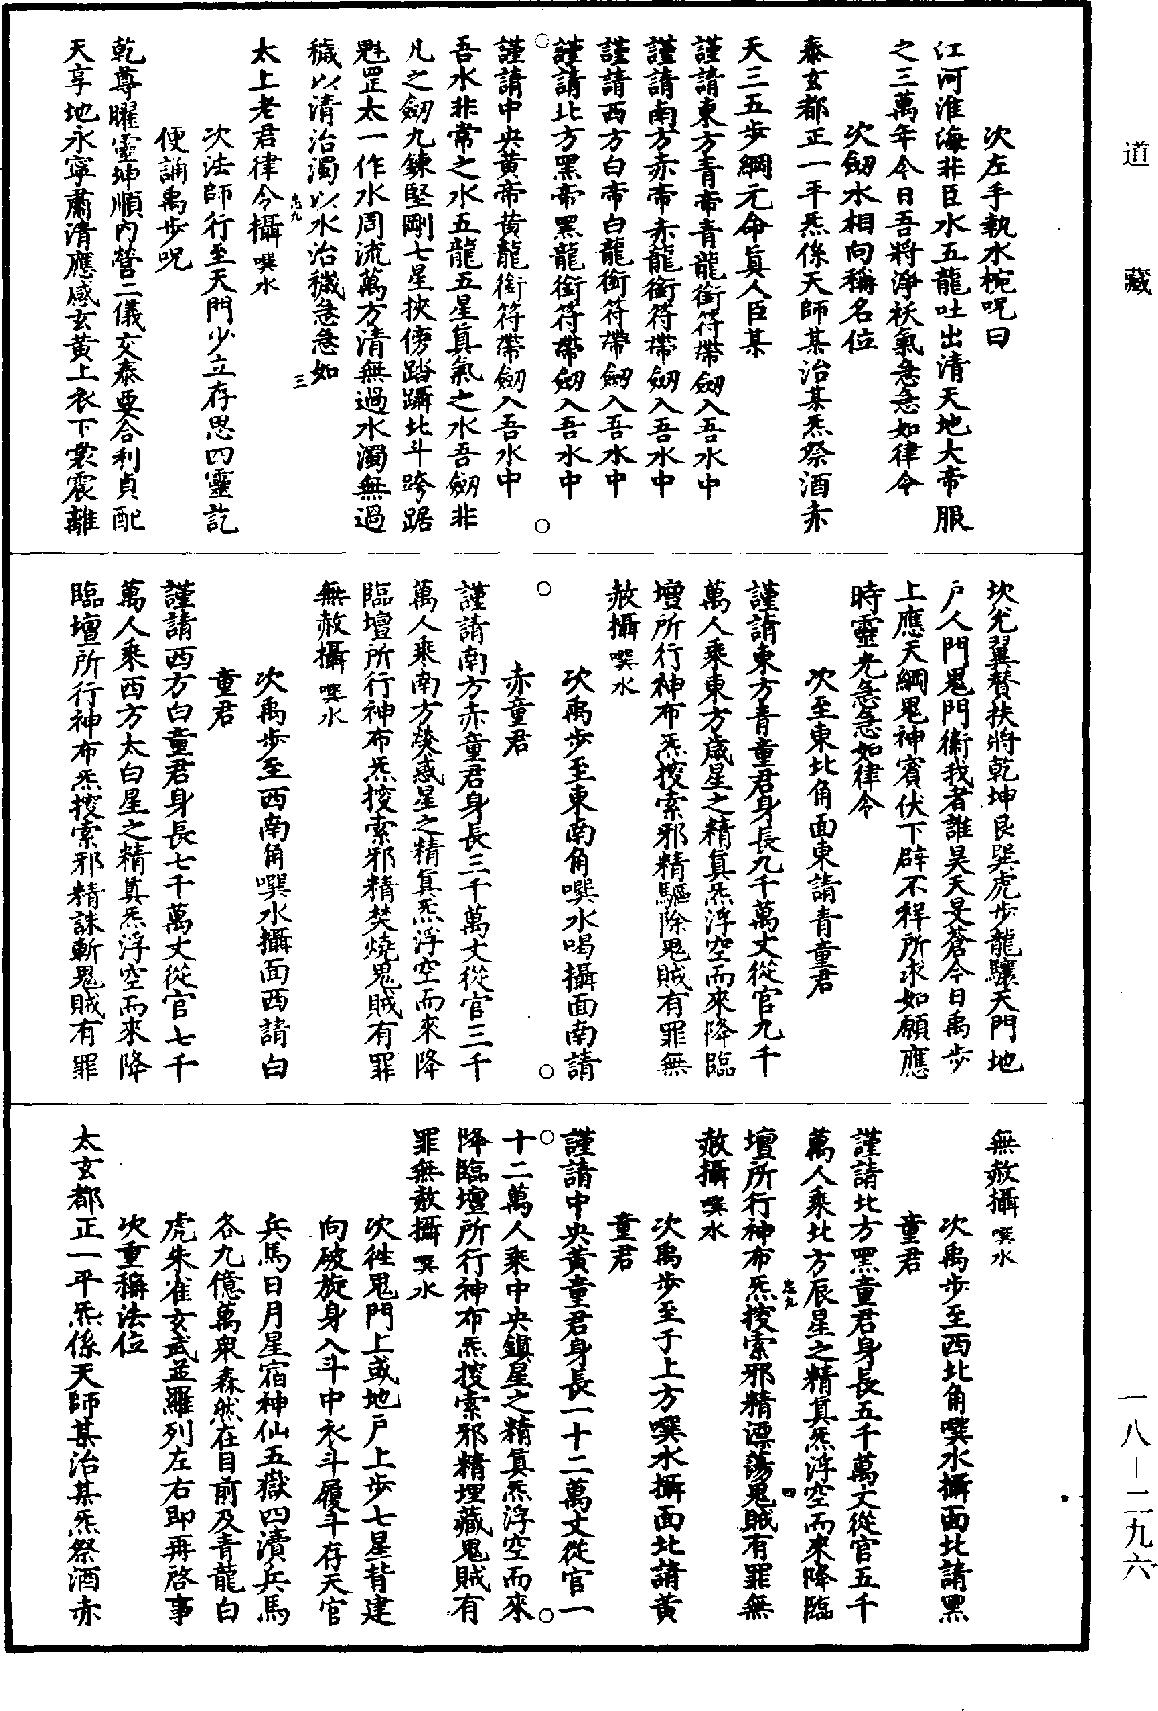 道藏
次左手執水椀呪曰
江河淮海非臣水五龍吐出清天地大帝服
之三萬年今日吾將淨袄氣急急如律令
次劒水相向稱名位
泰玄都正一平炁係天師某治某炁祭酒赤
天三五步綱元命真人臣某
謹請東方青帝青龍銜符帶劒入吾水中
謹請南方赤帝赤龍銜符帶劒入吾水中
謹請西方白帝白龍銜符帶劒入吾水中
謹請北方黑帝黑龍銜符帶劒入吾水中
謹請中央黃帝黃龍銜符帶劒入吾水中
吾水非常之水五龍五星真氣之水吾劒非
凡之劒九鍊堅剛七星挾傍踏躡北斗跨踞
魁罡太一作水周流萬方清無過水濁無過
穢以清治濁以水治穢急急如
忠九
三
太上老君律令攝噀水
次法師行至天門少立存思四靈訖
便誦禹步呪
乾尊曜靈坤順內營二儀交泰要合利貞配
天享地永寧肅清應感玄黃上衣下裳震離
坎兊翼贊扶將乾坤艮巽虎步龍驤天門地
戶人門鬼門衛我者誰昊天旻蒼今日禹步
上應天綱鬼神賓伏下辟不祥所求如願應
時靈光急急如律令
次至東北角面東請青童君
謹請東方青童君身長九千萬丈從官九千
萬人乘東方歲星之精真炁浮空而來降臨
壇所行神布炁搜索邪精驅除鬼賊有罪無
赦攝噀水
次禹步至東南角噀水喝攝面南請
赤童君
謹請南方赤童君身長三千萬丈從官三千
萬人乘南方熒惑星之精真炁浮空而來降
臨壇所行神布炁搜索邪精焚燒鬼賊有罪
無赦攝噀水
次禹步至西南角噀水攝面西請白
童君
謹請西方白童君身長七千萬丈從官七千
萬人乘西方太白星之精真炁浮空而來降
臨壇所行神布炁搜索邪精誅斬鬼賊有罪
無赦攝噀水
次禹步至西北角噀水攝面北請黑
童君
謹請北方黑童君身長五千萬丈從官五千
萬人乘北方辰星之精真炁浮空而來降臨
壇所行神布炁搜索邪精漂蕩鬼賊有罪無
忠九
四
赦攝噀水
次禹步至于上方噀水攝面北請黃
童君
謹請中央黃童君身長一十二萬丈從官一
十二萬人乘中央鎮星之精真炁浮空而來
降臨壇所行神布炁搜索邪精埋藏鬼賊有
罪無赦攝噀水
次徃鬼門上或地戶上步七星背建
向破旋身入斗中衣斗履斗存天官
兵馬日月星宿神仙五嶽四瀆兵馬
各九億萬衆森然在目前及青龍白
虎朱雀玄武並羅列左右即再啓事
次重稱法位
太玄都正一平炁係天師某治某炁祭酒赤
一八－二九六